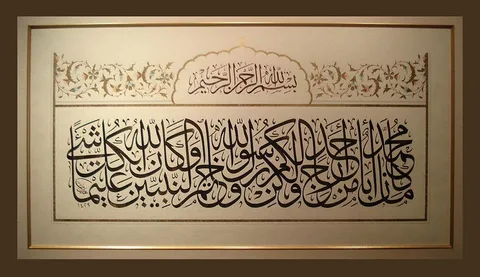 بسم الله الرحمن الرحيم
ما كان محمد أبا أحد من رجالكم ولكن رسول الله وخاتم النبيين وكان الله بكل شيء عليما